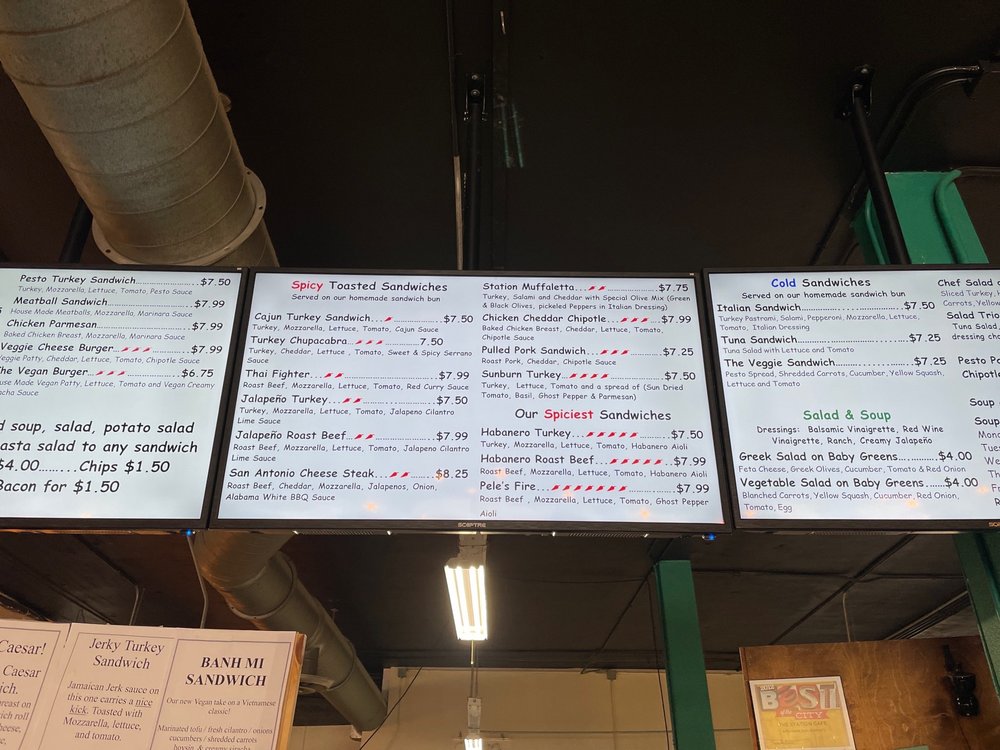 Pesto Turkey Sandwich..................$7.50
Turkey, Mozzarella, Lettuce, Tomato, Pesto Sauce
Meatball Sandwich..................$7.99
House Made Meatballs, Mozzarella, Marinara Sauce
Chicken Parmesan..................$7.99
Baked Chicken Breast, Mozzarella, Marinara Sauce
Veggie Cheese Burger...$7.99
Veggie Patty, Cheddar, Lettuce, Tomato, Chipotle Sauce
The Vegan Burger...$6.75
House Made Vegan Patty, Lettuce, Tomato and Vegan Creamy
Sauce
soup, salad, potato salad
pasta salad to any sandwich
$4.00.........Chips $1.50
Bacon for $1.50
Spicy Toasted Sandwiches
Served on our homemade sandwich bun
Cajun Turkey Sandwich...$7.50
Turkey, Mozzarella, Lettuce, Tomato, Cajun Sauce
Turkey Chupacabra...7.50
Turkey, Cheddar, Lettuce , Tomato, Sweet & Spicy Serrano
Sauce
Thai Fighter...$7.99
Roast Beef, Mozzarella, Lettuce, Tomato, Red Curry Sauce
Jalapeño Turkey...$7.50
Turkey, Mozzarella, Lettuce, Tomato, Jalapeno Cilantro
Lime Sauce
Jalapeño Roast Beef...$7.99
Roast Beef, Mozzarella, Lettuce, Tomato, Jalapeno Cilantro
Lime Sauce
San Antonio Cheese Steak...$8.25
Roast Beef, Cheddar, Mozzarella, Jalapenos, Onion,
Alabama White BBQ Sauce
Station Muffaletta...$7.75
Turkey, Salami and Cheddar with Special Olive Mix (Green
& Black Olives, pickeled Peppers in Italian Dressing)
Chicken Cheddar Chipotle...$7.99
Baked Chicken Breast, Cheddar, Lettuce, Tomato,
Chipotle Sauce
Pulled Pork Sandwich...$7.25
Roast Pork, Cheddar, Chipotle Sauce
Sunburn Turkey...$7.50
Turkey, Lettuce, Tomato and a spread of (Sun Dried
Tomato, Basil, Ghost Pepper & Parmesan)
Our Spiciest Sandwiches
Habanero Turkey...$7.50
Turkey, Mozzarella, Lettuce, Tomato, Habanero Aioli
Habanero Roast Beef...$7.99
Roast Beef, Mozzarella, Lettuce, Tomato, Habanero Aioli
Pele's Fire...$7.99
Roast Beef , Mozzarella, Lettuce, Tomato, Ghost Pepper
Aioli
SCEPTRE
Cold Sandwiches
Served on our homemade sandwich bun
Italian Sandwich..................$7.50
Turkey Pastrami, Salami, Pepperoni, Mozzarella, Lettuce,
Tomato, Italian Dressing
Tuna Sandwich..................$7.25
Tuna Salad with Lettuce and Tomato
The Veggie Sandwich..................$7.25
Pesto Spread, Shredded Carrots, Cucumber, Yellow Squash,
Lettuce and Tomato
Salad & Soup
Dressings: Balsamic Vinaigrette, Red Wine
Vinaigrette, Ranch, Creamy Jalapeño
Greek Salad on Baby Greens......$4.00
Feta Cheese, Greek Olives, Cucumber, Tomato & Red Onion
Vegetable Salad on Baby Greens......$4.00
Blanched Carrots, Yellow Squash, Cucumber, Red Onion,
Tomato, Egg
Chef Salad
Sliced Turkey,
Carrots, Yellow
Salad Trio
Tuna Salad
dressing
Pesto
Chipotle
Soup
Soup
Caesar!
Caesar
Jerky Turkey
Sandwich
Jamaican Jerk sauce on
this one carries a nice
kick. Toasted with
Mozzarella, lettuce,
and tomato.
BANH MI
SANDWICH
Our new Vegan take on a Vietnamese
classic!
Marinated tofu / fresh cilantro / onions
cucumbers / shredded carrots
hoysin & creamy sriracha
BEST
of the
CITY
THE STATION CAFE